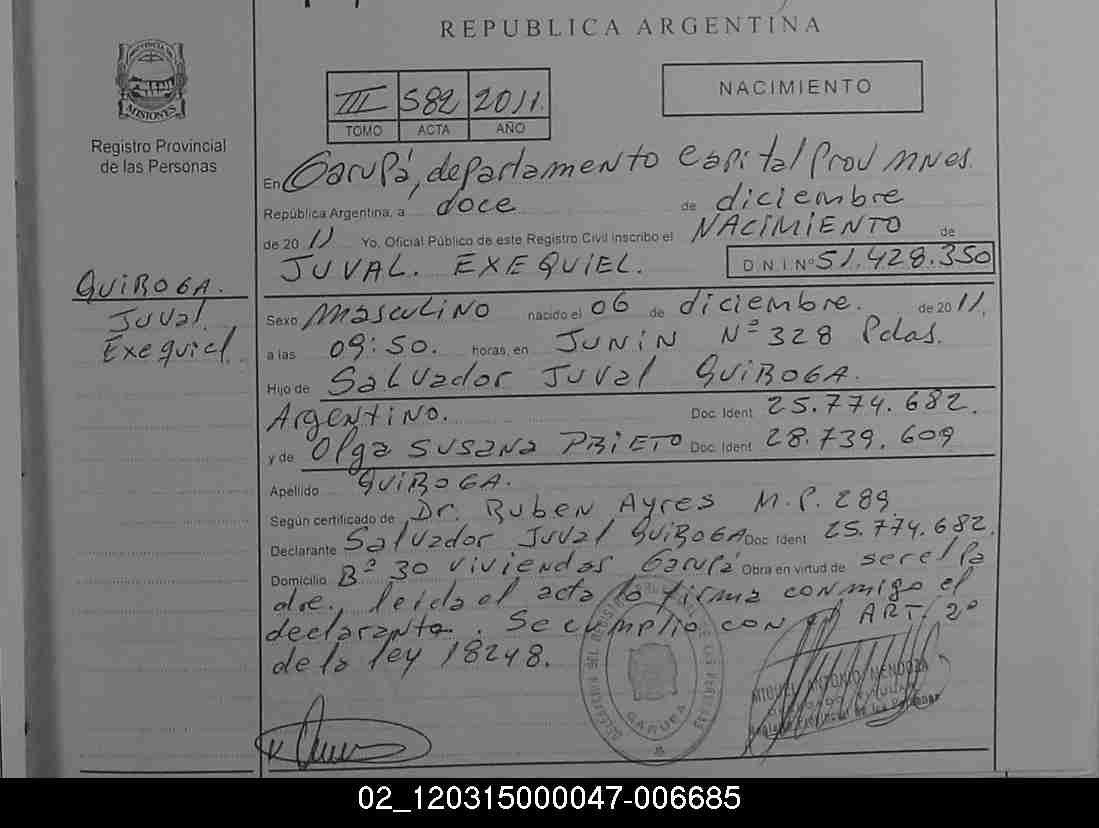 REPUBLICA ARGENTINA
PROVINCIA DE
MISIONES
Registro Provincial
de las Personas
III 582 2011.
TOMO ACTA AÑO
NACIMIENTO
En Garupá, departamento Capital Prov Mnes.
República Argentina, a doce de diciembre
de 20 11 Yo, Oficial Público de este Registro Civil inscribo el NACIMIENTO de
JUVAL. EXEQUIEL. D.N.I Nº 51.428.350
QUIROGA.
Juval.
Exequiel.
Sexo Masculino nacido el 06 de diciembre. de 20 11.
a las 09:50. horas, en JUNIN Nº 328 Pdas.
Hijo de Salvador Juval QUIROGA.
Argentino. Doc. Ident 25.774.682.
y de Olga SUSANA PRIETO Doc. Ident 28.739.609
Apellido QUIROGA.
Según certificado de Dr. Ruben Ayres M.P. 289.
Declarante Salvador Juval QUIROGA Doc. Ident 25.774.682.
Domicilio Bº 30 viviendas Garupá Obra en virtud de ser el pa
dre, leida el acta lo firma conmigo el
declarante. Se cumplio con el ART. 2º
de la ley 18248.
GARUPA
MIGUEL ANTONIO MENDOZA
Registro Provincial de las Personas
02_120315000047-006685